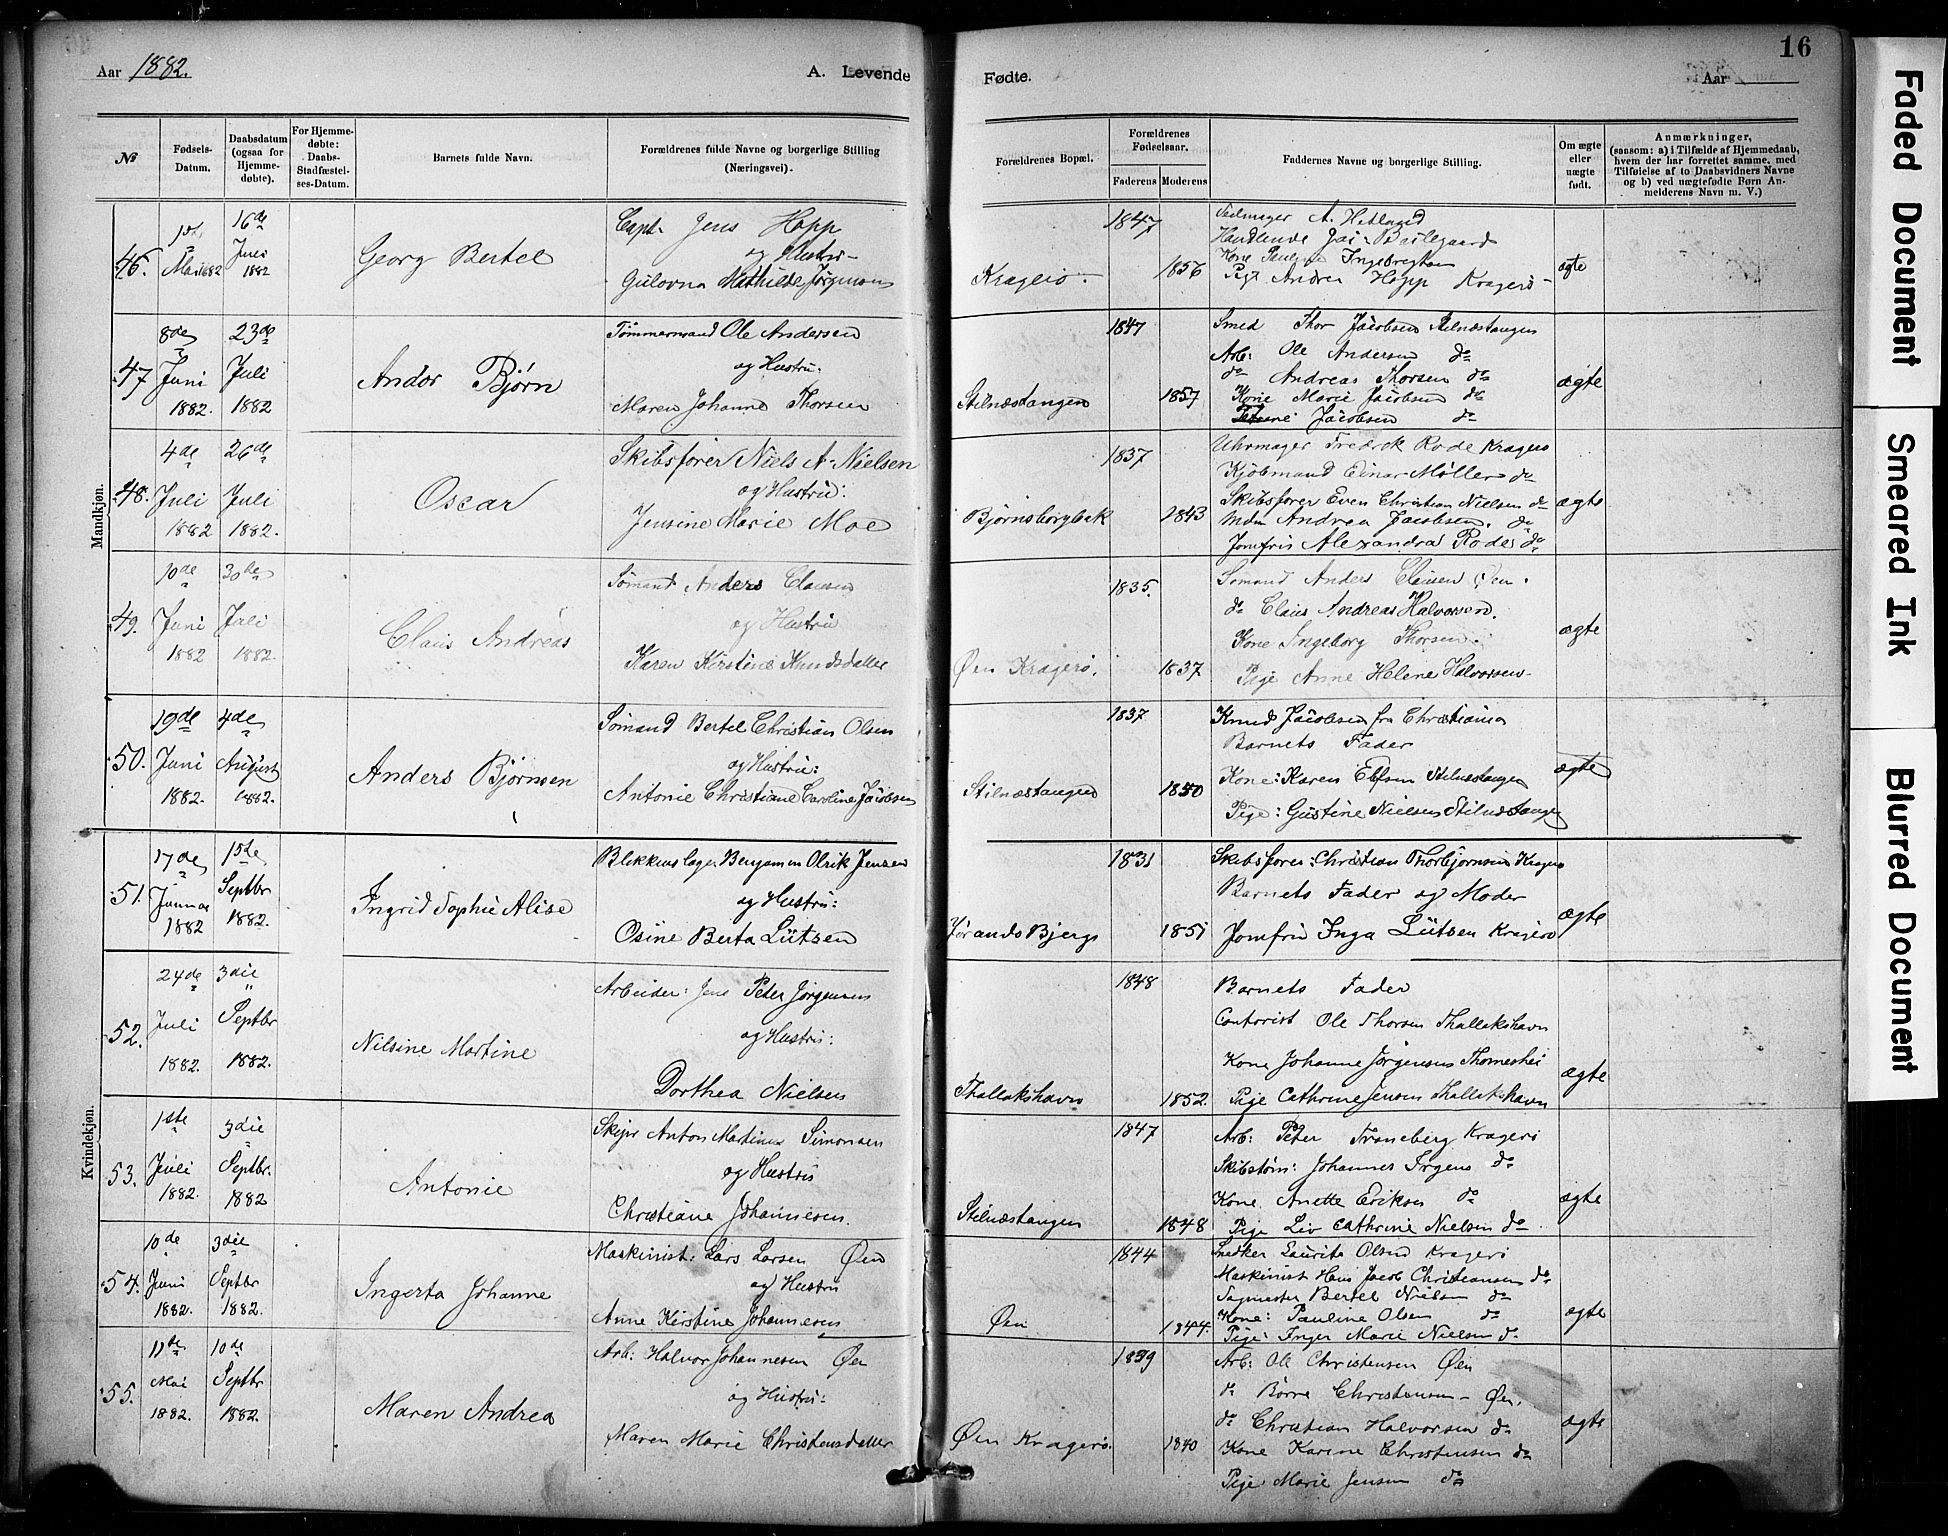 Aar 1882.
A. Levende
Fødte.
Aar
16
№
Fødsels-Datum.
Daabsdatum (ogsaa for Hjemme-døbte).
For Hjemme-døbte: Daabs-Stadfæstel-ses-Datum.
Barnets fulde Navn.
Forældrenes fulde Navne og borgerlige Stilling (Næringsvei).
Forældrenes Bopæl.
Forældrenes Fødselsaar.
Faderens
Moderens
Faddernes Navne og borgerlige Stilling.
Om ægte eller uægte født.
Anmærkninger,
(saasom: a) i Tilfælde af Hjemmedaab, hvem der har forrettet samme, med Tilføielse af to Daabsvidners Navne og b) ved uægtefødte Børn An-melderens Navn m. V.)
Mandkjøn.
46.
1882
16de Juni 1882
Georg Bertel
Capt. Jens Hopp
og Hustru
Gulovna Mathilde Jørgensen
Kragerø.
1847
1856
A. Hetland
Handlende
Kone Pauline Ingebregtsen
Pige Andrea Hopp Kragerø
ægte
47
8de Juni 1882.
23de Juli 1882
Andor Bjørn
Tømmermand Ole Andersen
og Hustru.
Maren Johanne Thorsen
Stilnæstangen
1847
1857
Smed Thor Jacobsen Stilnæstangen
Arb: Ole Andersen do
do Andreas Thorsen do
Kone Marie Jacobsen do
Jacobsen do
ægte
48.
4de Juli 1882
26de Juli 1882.
Oscar
Skibsfører Niels A. Nielsen
og Hustru:
Jensine Marie Moe
Bjørnsborgbak
1837
1843
Uhrmager Fredrik Rode Kragerø
Kjøbmand Einar Møller do
Skibsfører Even Christian Nielsen do
Mdm Andrea Jacobsen. do
Jomfru Alexandra Rode do
ægte
49.
10de Juni 1882
30de Juli 1882.
Claus Andreas
Sømand Anders Clausen
og Hustru
Karen Kirstine Knudsdatter
Øen Kragerø.
1835.
1837
Sømand Anders Clausen Øen.
do Claus Andreas Halvorsen.
Kone Ingeborg Thorsen.
Pige Anne Helene Halvorsen
ægte
50.
19de Juni 1882.
4de August 1882.
Anders Bjørnsen
Sømand Bertel Christian Olsen
og Hustru:
Antonie Christiane Caroline Jacobsen
Stilnæstangen
1837
1850
Knud Jacobsen fra Christiania
Barnets Fader
Kone: Karen Elfsen Stilnæstangen
Pige: Gustine Nielsen Stilnæstangen
ægte
Kvindekjøn.
51.
17de Januar 1882
1ste Septbr 1882.
Ingrid Sophie Alise
Blikkenslager Benjamin Olrik Jensen
og Hustru:
Osine Berta Lütsen
1831
1851
Skibsfører: Christian Thorbjørnsen Kragerø
Barnets Fader og Moder
Jomfru Inga Lütsen Kragerø
ægte
52.
24de Juli 1882.
3die Septbr 1882.
Nilsine Martine
Arbeider: Jens Peter Jørgensen
og Hustru:
Dorthea Nielsen
Thallakshavn
1848
1852.
Barnets Fader
Contorist Ole Thorsen Thallakshavn
Kone Johanne Jørgensen Thomeshei
Pige Cathrine Jensen Thallakshavn
ægte
53.
1ste Juli 1882.
3die Septbr. 1882
Antonie
Skipr Anton Martinus Simonsen
og Hustru
Christiane Johannesen.
Stilnæstangen
1847
1848
Arb: Peter Traneberg Kragerø
Skibstøm: Johannes Irgens do
Kone. Anette Eriksen do
Pige Liv Cathrine Nielsen do
ægte
54.
10de Juni 1882.
3die Septbr 1882.
Ingerta Johanne
Maskinist: Lars Larsen Øen
og Hustru
Anne Kirstine Johannesen
Øen
1844
1844.
Snedker Laurits Olsen Kragerø
Maskinist Hans Jacob Christiansen do
Sagmester Bertel Nielsen do
Kone: Pauline Olsen do
Pige: Inger Marie Nielsen do
ægte
55.
11de Mai 1882.
10de Septbr 1882.
Maren Andrea
Arb: Halvor Johannesen Øen
og Hustru:
Maren Marie Christensdatter
Øen Kragerø.
1839
1840
Arb: Ole Christensen Øen
do Børre Christensen Øen.
do Christian Halvorsen do
Kone Karine Christensen do
Pige Marie Jensen do
ægte
Faded Document
Smeared Ink
Blurred Document